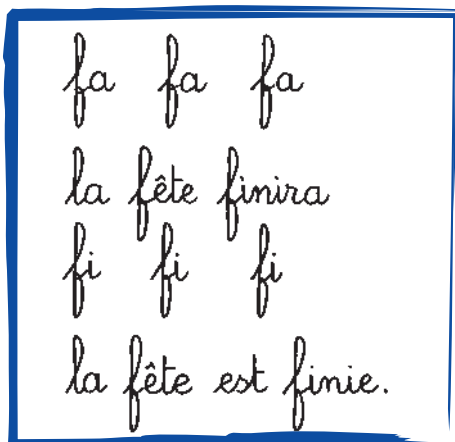 fa fa fa
la fête finira
fi fi fi
la fête est finie.